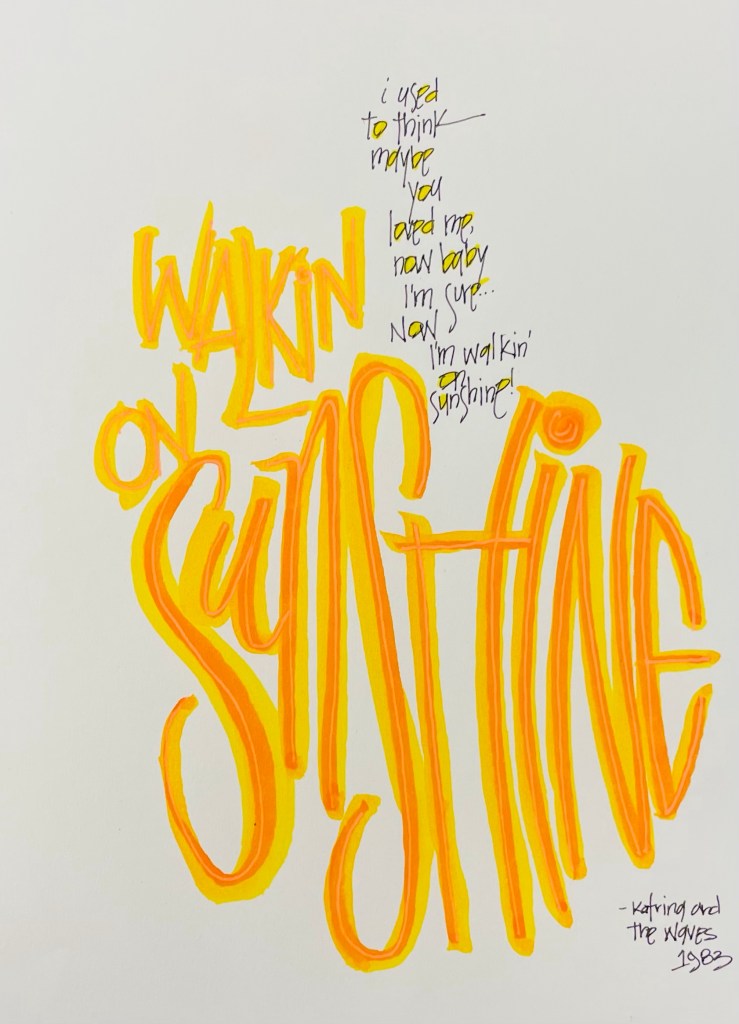 i used
to think
maybe
you
loved me,
now baby
I'm sure...
Now
I'm walkin'
on
sunshine!
WALKiN
ON
SuNSHiNE
- Katrina and
the waves
1983